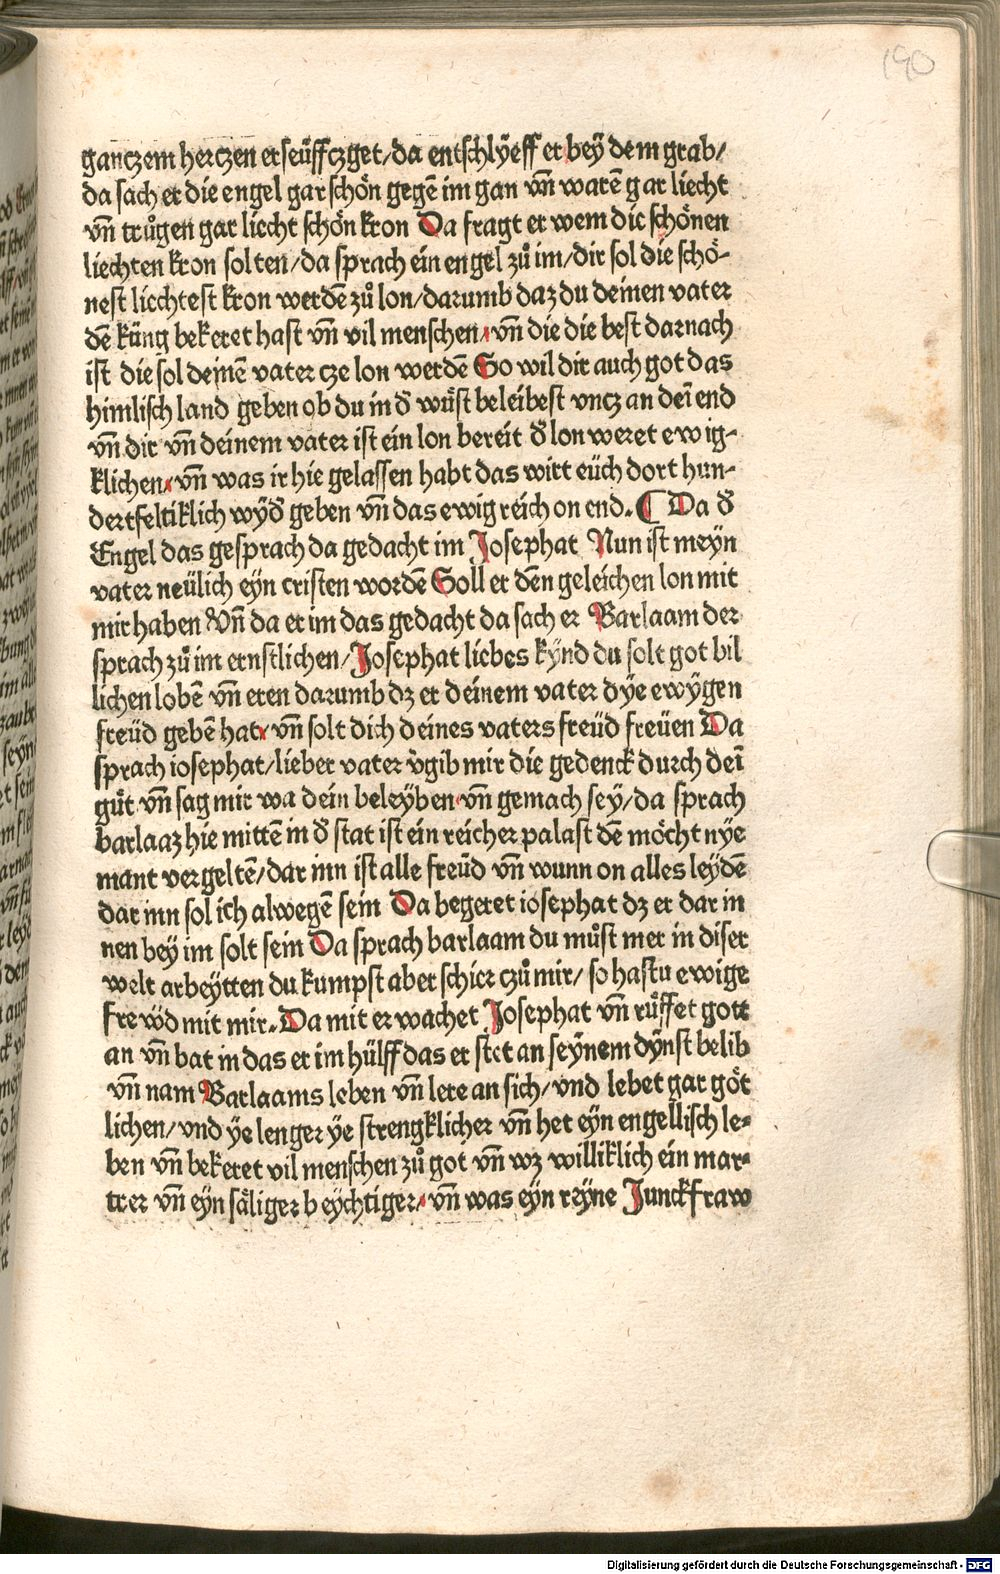 190
ganczem herczen erseüffczget/da entschlÿeff er bey dem grab/
da sach er die engel gar schön gegē im gan vn̄ warē gar liecht
vn̄ trůgen gar liecht schön kron Da fragt er wem die schönen
liechten kron solten/da sprach ein engel zů im/dir sol die schö-
nest liechtest kron werdē zů lon/darumb daz du deinen vater
dē küng bekeret hast vn̄ vil menschen/vn̄ die die best darnach
ist die sol deinē vater cze lon werdē So wil dir auch got das
himlisch land geben ob du in đ wüst beleibest vncz an dei end
vn̄ dir vn̄ deinem vater ist ein lon bereit đ lon weret ewig-
klichen/vn̄ was ir hie gelassen habt das wirt eüch dort hun-
dertfeltiklich wyđ geben vn̄ das ewig reich on end. ¶ Da đ
Engel das gesprach da gedacht im Josephat Nun ist meyn
vater neülich eyn cristen wordē Soll er dēn geleichen lon mit
mir haben Vn̄ da er im das gedacht da sach er Barlaam der
sprach zů im ernstlichen/Josephat liebes kynd du solt got bil
lichen lobē vn̄ eren darumb dz er deinem vater dye ewÿgen
freüd gebē hat/vn̄ solt dich deines vaters freüd freüen Da
sprach iosephat/lieber vater v̄gib mir die gedenck durch dei
güt vn̄ sag mir wa dein beleÿben vn̄ gemach sey/da sprach
barlaaz hie mittē in đ stat ist ein reicher palast dē möcht nÿe
mant vergeltē/dar inn ist alle freüd vn̄ wunn on alles leydē
dar inn sol ich alwegē sein Da begeret iosephat dz er dar in
nen bey im solt sein Da sprach barlaam du můst mer in diser
welt arbeÿtten du kumpst aber schier czů mir/ so hastu ewige
frewd mit mir. Da mit erwachet Josephat vn̄ růffet gott
an vn̄ bat in das er im hülff das er stet an seÿnem dÿnst belib
vn̄ nam Barlaams leben vn̄ lere an sich/vnd lebet gar göt
lichen/vnd ÿe lenger ÿe strengklicher vn̄ het eÿn engellisch le-
ben vn̄ bekeret vil menschen zů got vn̄ wz williklich ein mar-
trer vn̄ eÿn säliger beÿchtiger/vn̄ was eÿn reÿne Junckfraw
Digitalisierung gefördert durch die Deutsche Forschungsgemeinschaft - DFG